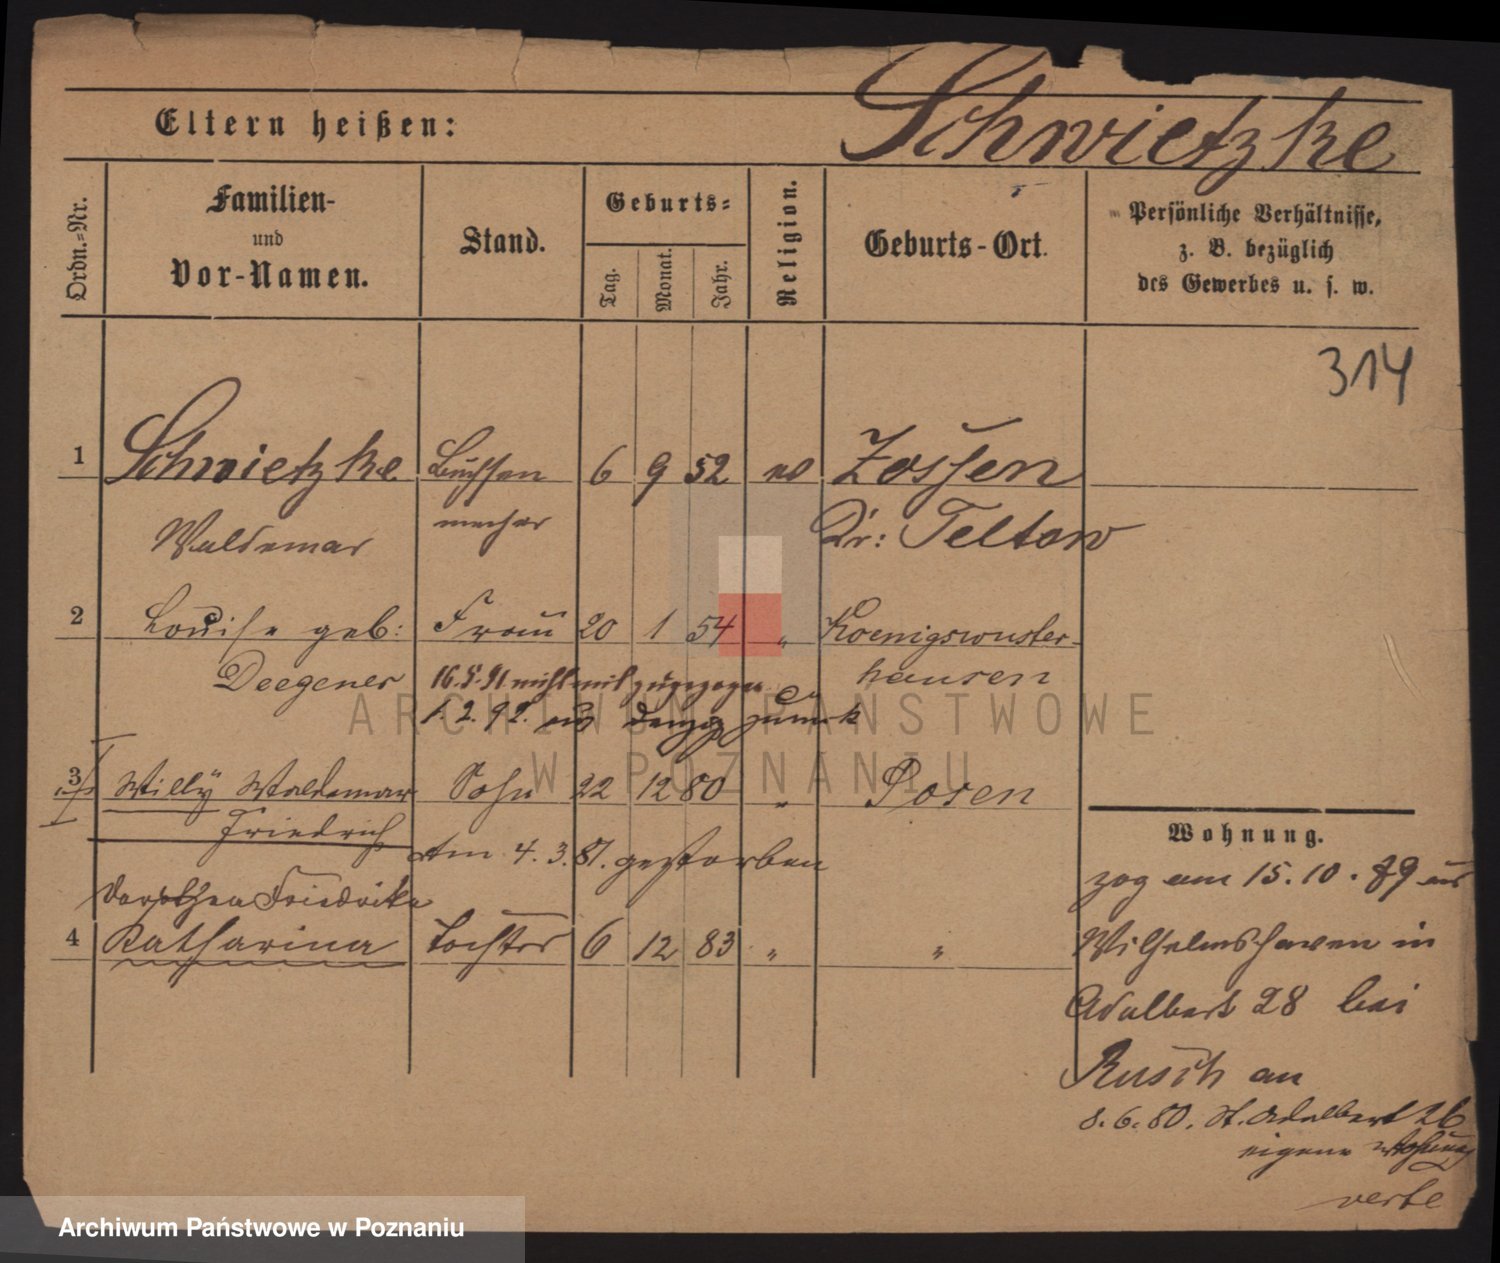 Schwietzke
Eltern heißen:
Ordn.=Nr.
Familien-
und
Vor-Namen.
Stand.
Geburts=
Tag.
Monat.
Jahr.
Religion.
Geburts-Ort.
Persönliche Verhältnisse,
z. B. bezüglich
des Gewerbes u. s. w.
314
1 Schwietzke Büchsen 6 9 52 ev Zossen
Waldemar macher Kr: Teltow
2 Louise geb: Frau 20 1 54 " Koenigswuster-
Deegener hausen
16.5.91 nicht mit zugezogen
1.2.92. aus Danzig zurück
3 Willy Waldemar Sohn 22 12 80 " Posen
Friedrich
Am 4.3.81. gestorben
Dorothea Friedrike
4 Katharina Tochter 6 12 83 " "
Wohnung.
zog am 15.10.89 aus
Wilhelmshaven in
Adalbert 28 bei
Rusch an
St. Adalbert 26
eigene Wohnung
ARCHIWUM PAŃSTWOWE
W POZNANIU
Archiwum Państwowe w Poznaniu